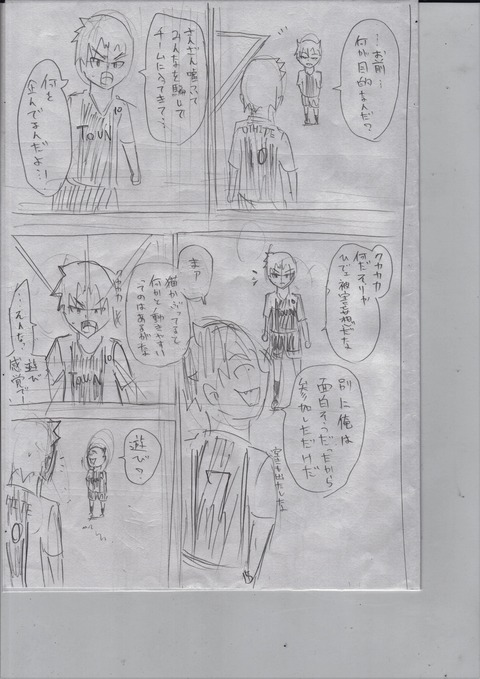 …お前…
何が目的なんだ?
WHITE
10
さんざん嘘ついて
みんなを騙して
チームに入ってきて…
何を
企んでるんだよ…!
TOUN
10
クカカカ
何だそりゃ
ひでェ被害妄想だな
まァ
猫かぶってるて
何かと動きやすい
ってのはあるがな
別に俺は
面白そうだったから
参加しただけだ
7
…そんな?
遊び
感覚で…
TOUN
10
遊び?